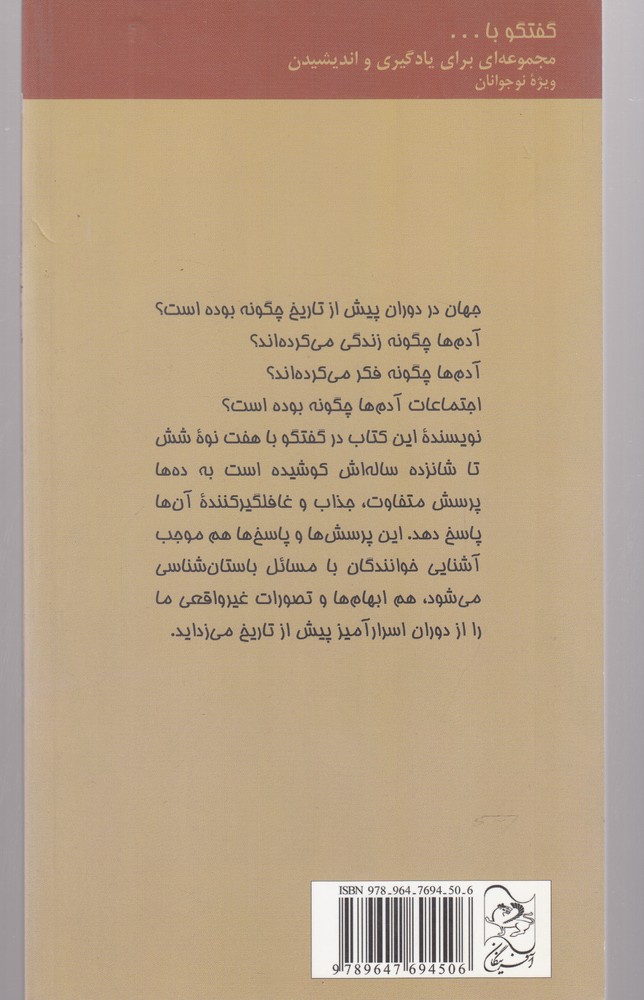 گفتگو با ...
مجموعه‌ای برای یادگیری و اندیشیدن
ویژهٔ نوجوانان
جهان در دوران پیش از تاریخ چگونه بوده است؟
آدم‌ها چگونه زندگی می‌کرده‌اند؟
آدم‌ها چگونه فکر می‌کرده‌اند؟
اجتماعات آدم‌ها چگونه بوده است؟
نویسندهٔ این کتاب در گفتگو با هفت نوهٔ شش
تا شانزده ساله‌اش کوشیده است به ده‌ها
پرسش متفاوت، جذاب و غافلگیرکنندهٔ آن‌ها
پاسخ دهد. این پرسش‌ها و پاسخ‌ها هم موجب
آشنایی خوانندگان با مسائل باستان‌شناسی
می‌شود، هم ابهام‌ها و تصورات غیرواقعی ما
را از دوران اسرارآمیز پیش از تاریخ می‌زداید.
ISBN 978-964-7694-50-6
9 789647 694506
آفرینگان